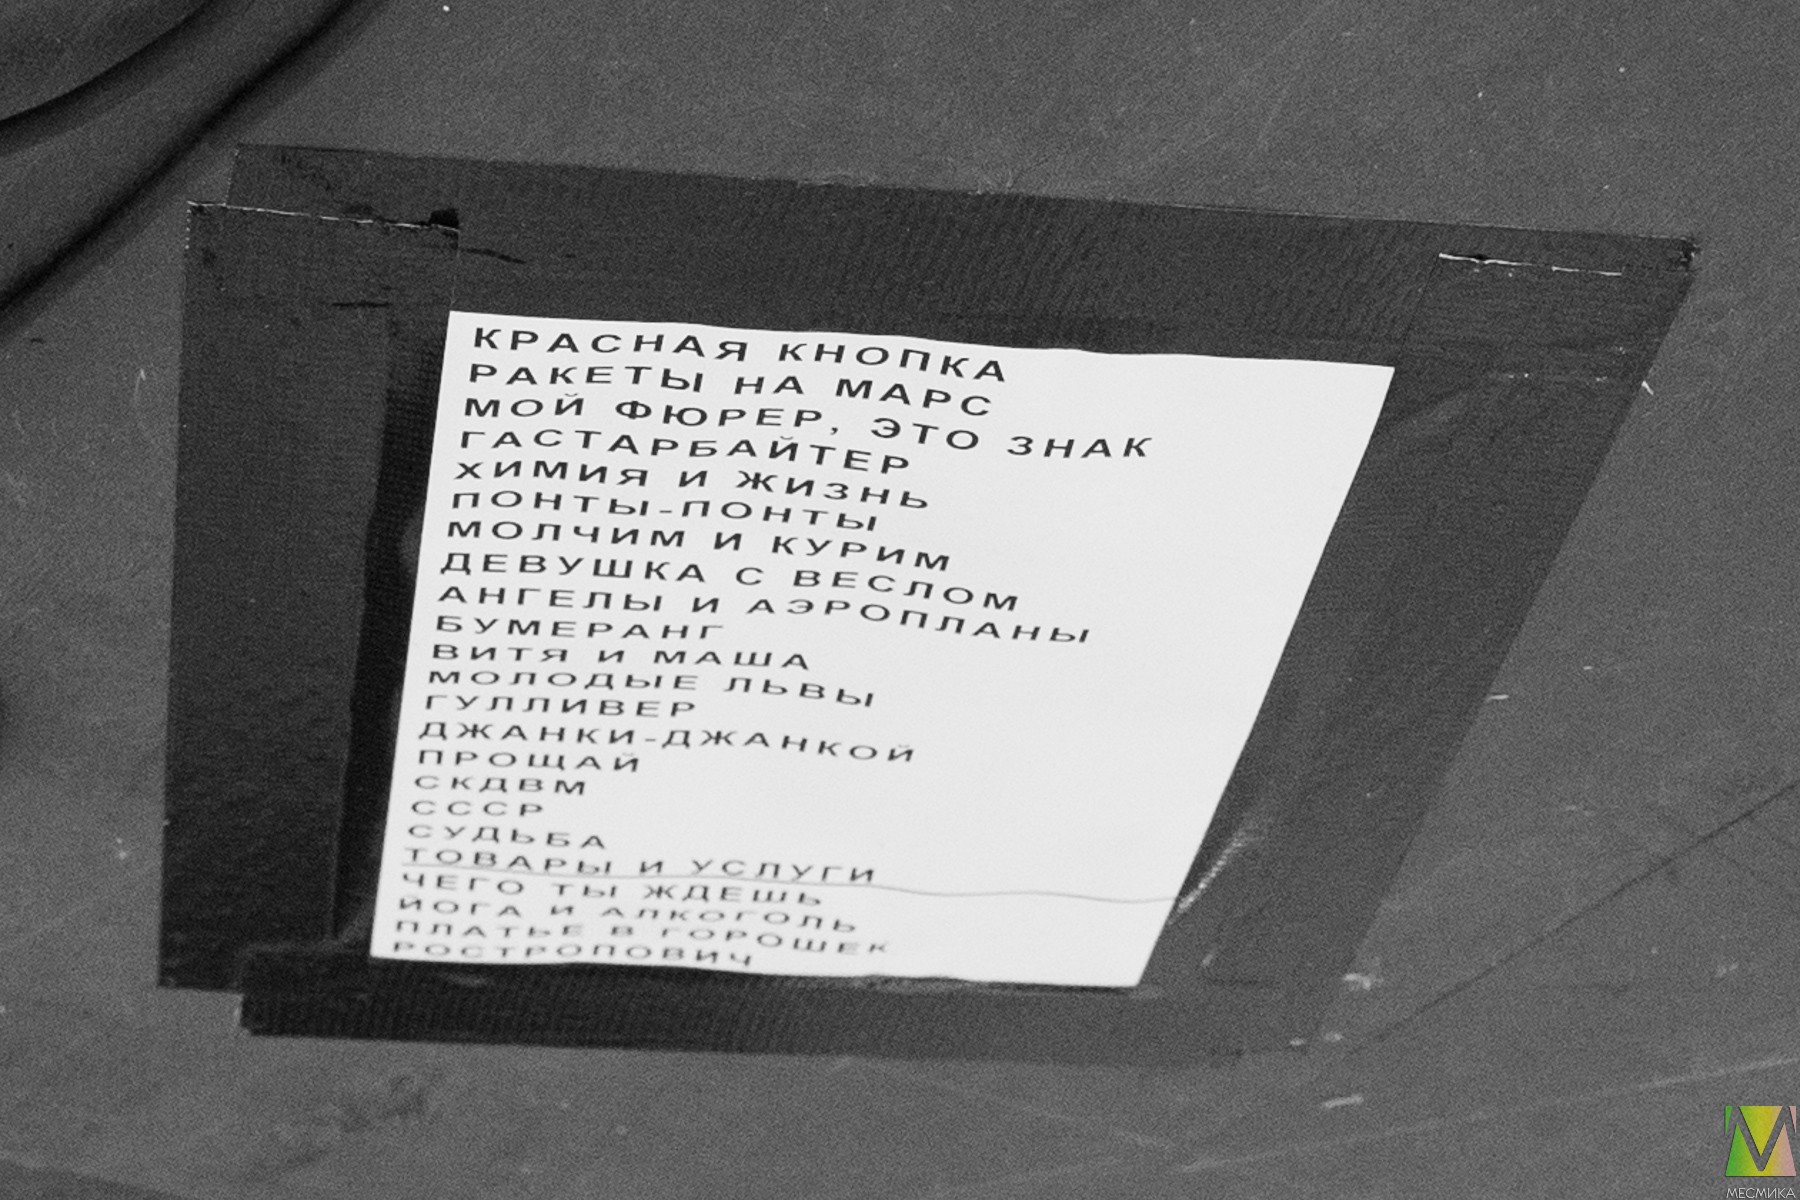 КРАСНАЯ КНОПКА
РАКЕТЫ НА МАРС
МОЙ ФЮРЕР, ЭТО ЗНАК
ГАСТАРБАЙТЕР
ХИМИЯ И ЖИЗНЬ
ПОНТЫ-ПОНТЫ
МОЛЧИМ И КУРИМ
ДЕВУШКА С ВЕСЛОМ
АНГЕЛЫ И АЭРОПЛАНЫ
БУМЕРАНГ
ВИТЯ И МАША
МОЛОДЫЕ ЛЬВЫ
ГУЛЛИВЕР
ДЖАНКИ-ДЖАНКОЙ
ПРОЩАЙ
СКДВМ
СССР
СУДЬБА
ТОВАРЫ И УСЛУГИ
ЧЕГО ТЫ ЖДЕШЬ
ЙОГА И АЛКОГОЛЬ
ПЛАТЬЕ В ГОРОШЕК
РОСТРОПОВИЧ
МЕСМИКА